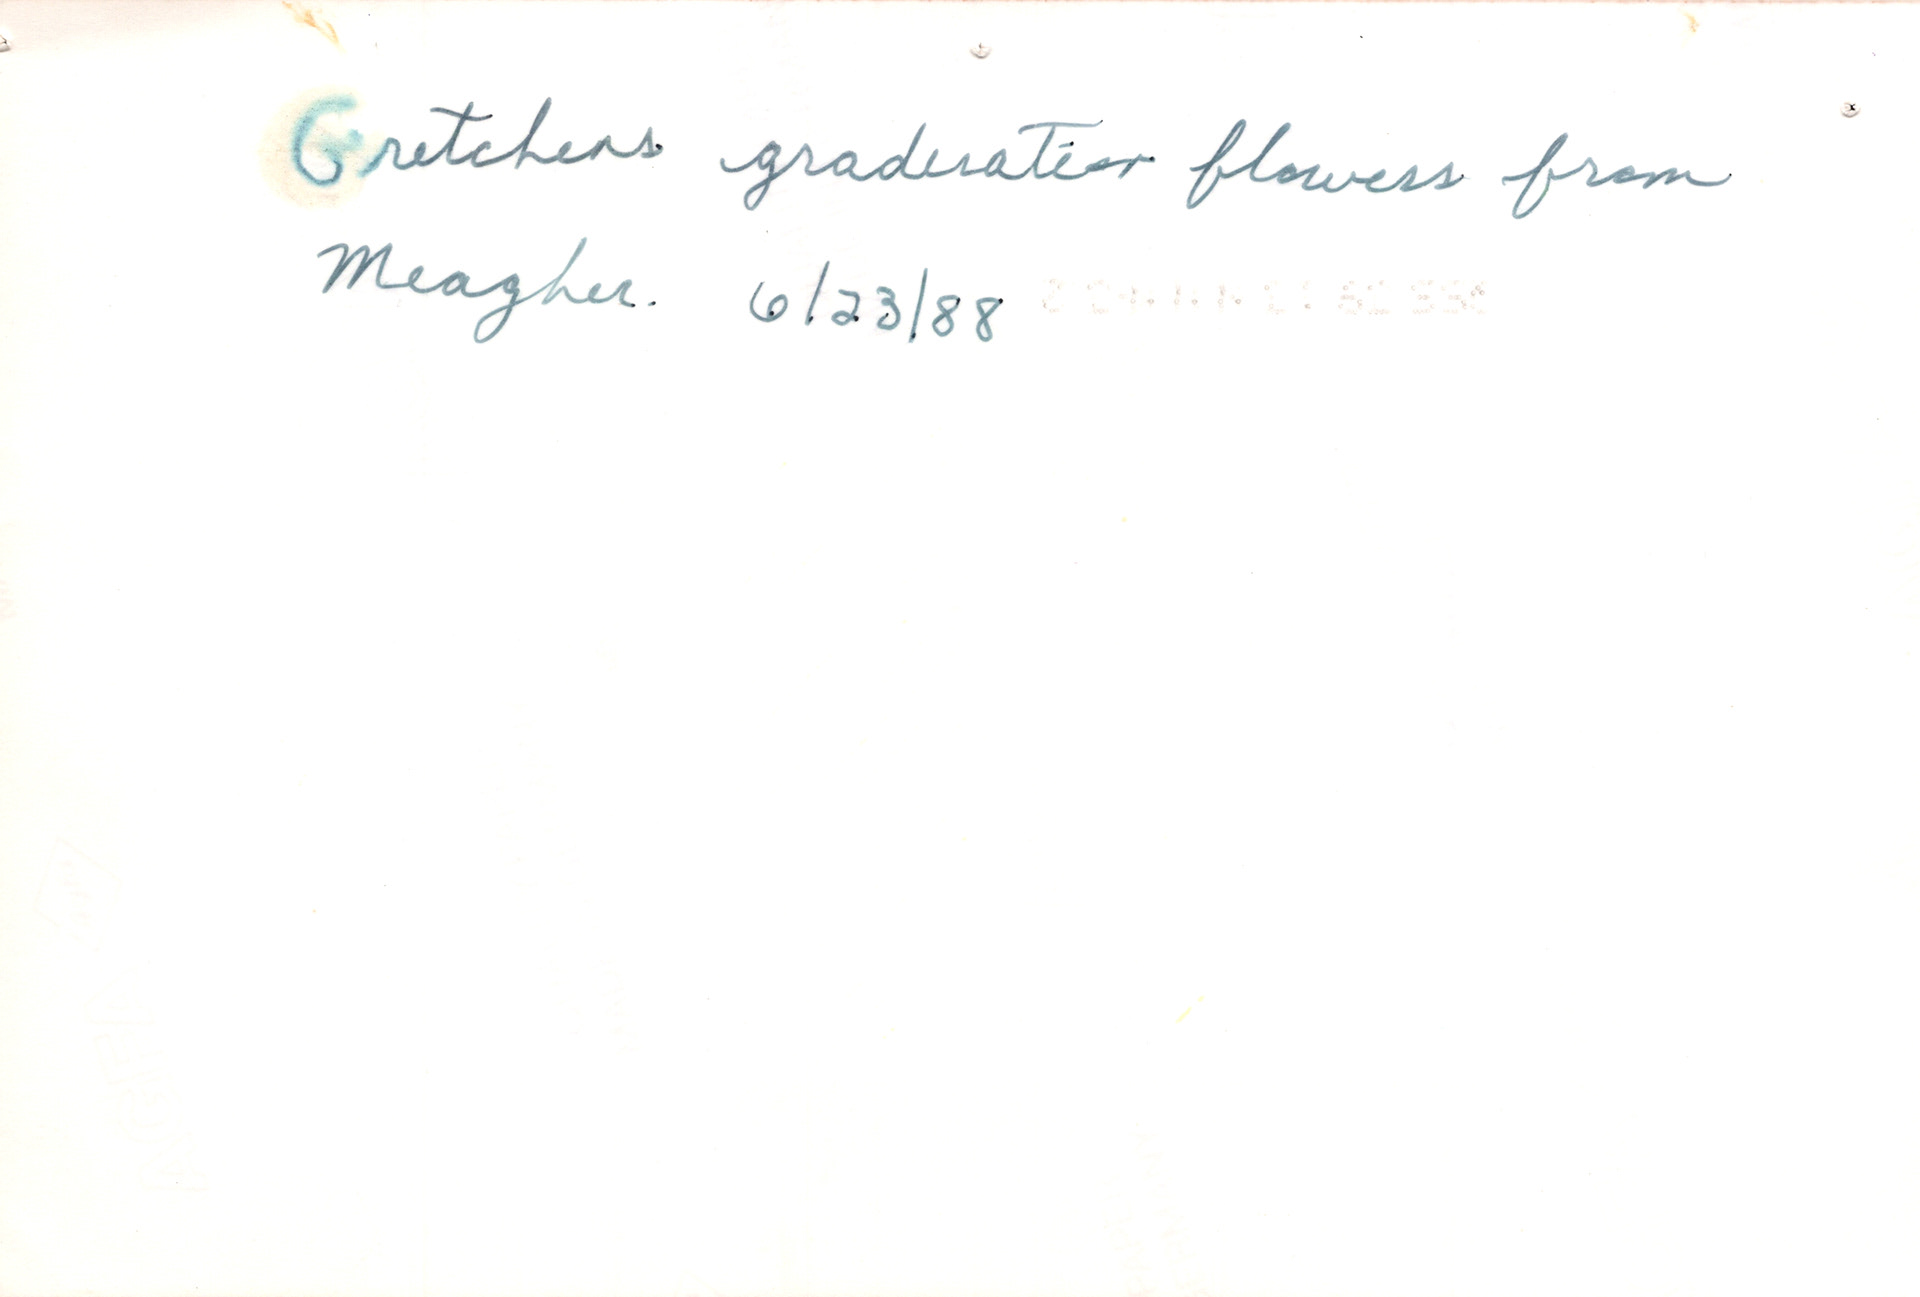 Gretchens graduation flowers from
Meagher. 6/23/88